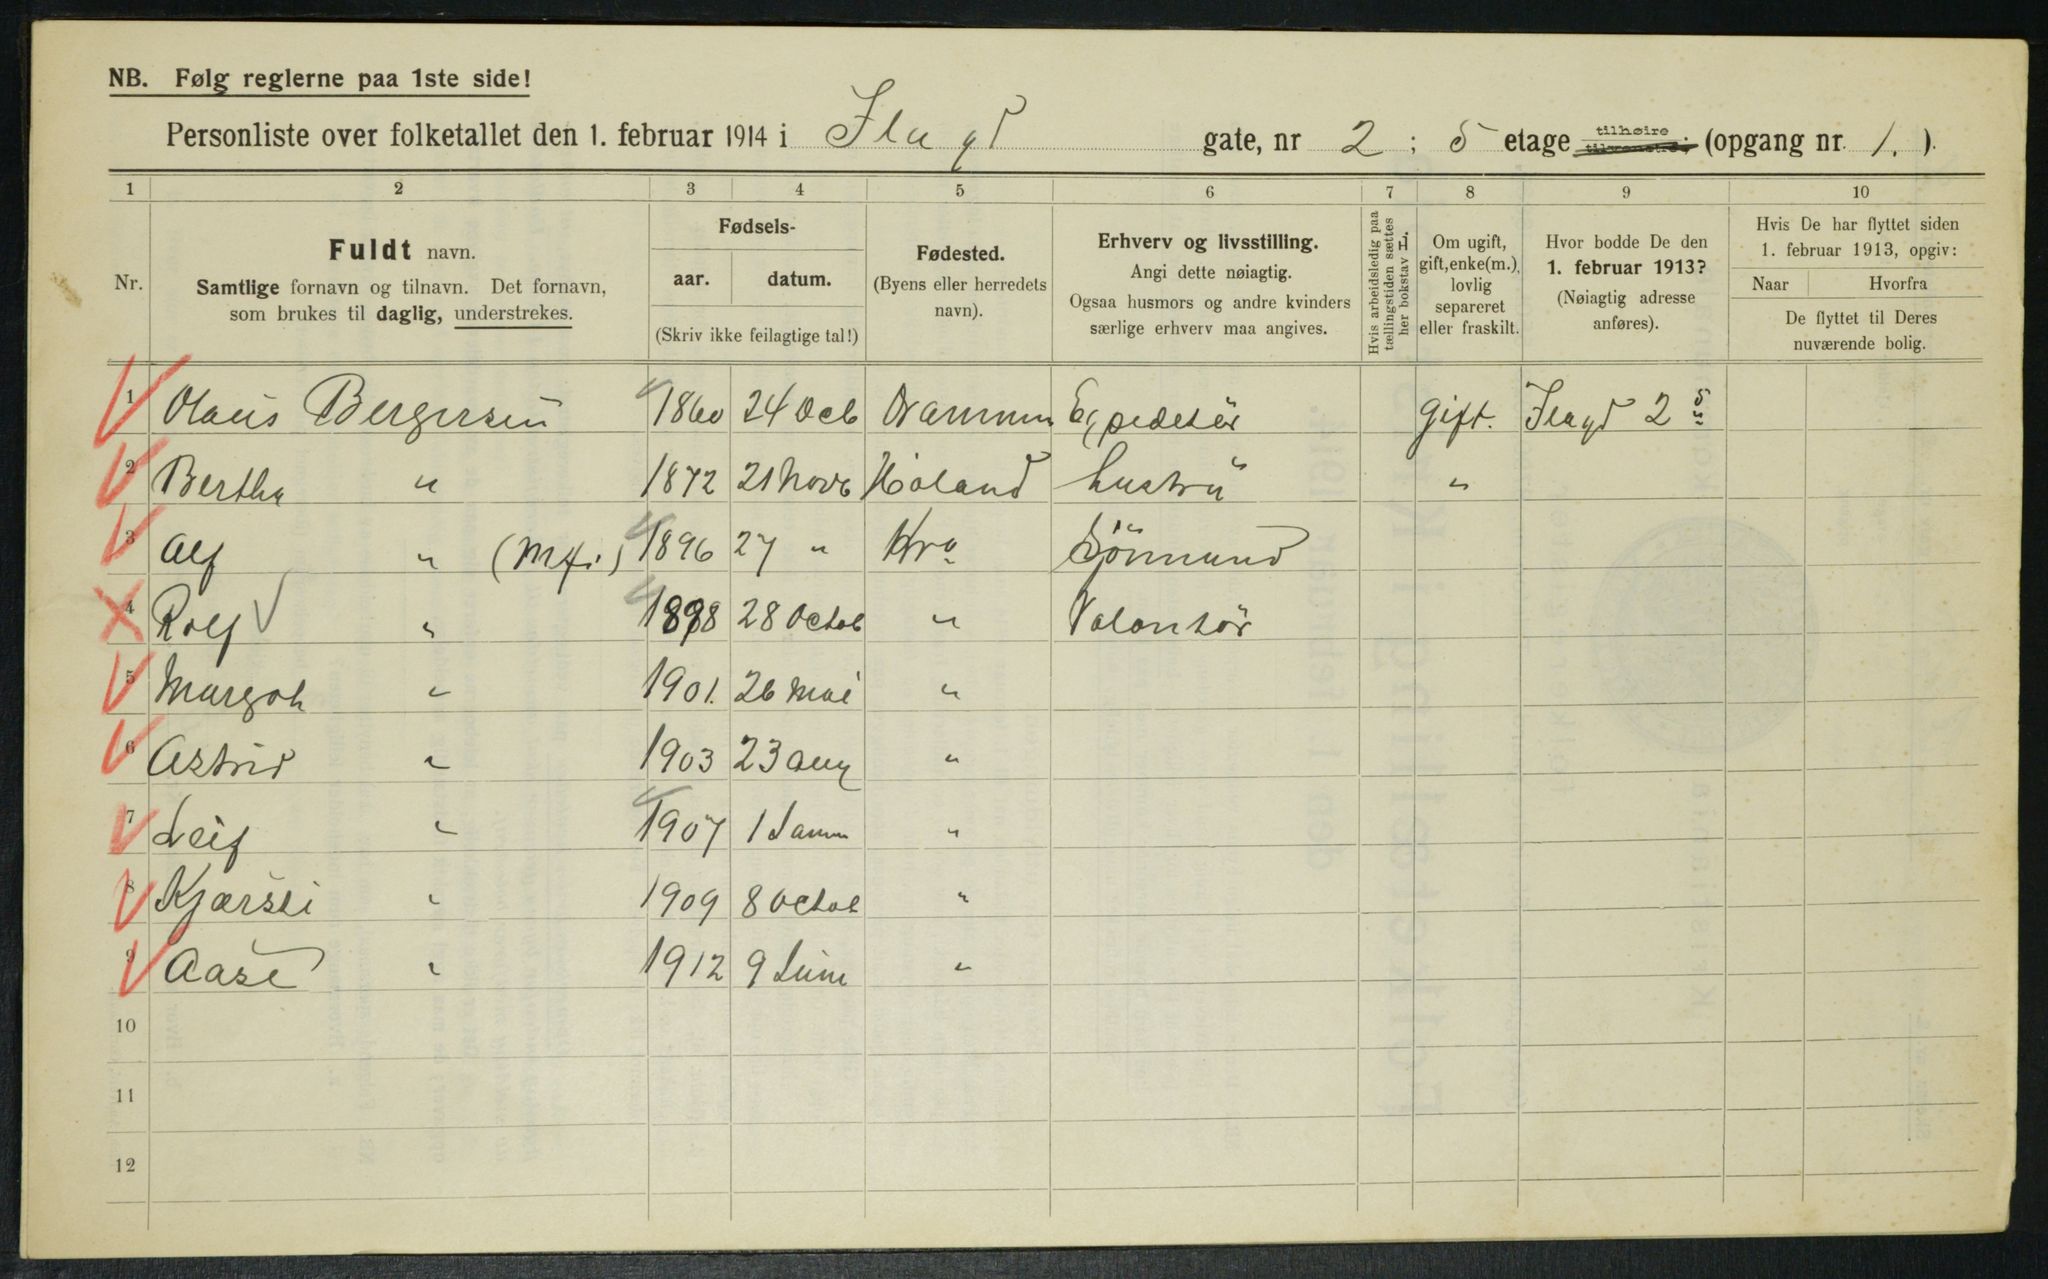 NB. Følg reglerne paa 1ste side!
Personliste over folketallet den 1. februar 1914 i Ilagd gate, nr 2; 5 etage tilhøire (opgang nr. 1.).
1 2 3 4 5 6 7 8 9 10
Nr.
Fuldt navn.
Samtlige fornavn og tilnavn. Det fornavn,
som brukes til daglig, understrekes.
Fødsels-
aar. datum.
(Skriv ikke feilagtige tal!)
Fødested.
(Byens eller herredets
navn).
Erhverv og livsstilling.
Angi dette nøiagtig.
Ogsaa husmors og andre kvinders
særlige erhverv maa angives.
Hvis arbeidsledig paa
tællingstiden sættes
her bokstav L.
Om ugift,
gift, enke(m.),
lovlig
separeret
eller fraskilt.
Hvor bodde De den
1. februar 1913?
(Nøiagtig adresse
anføres).
Hvis De har flyttet siden
1. februar 1913, opgiv:
Naar Hvorfra
De flyttet til Deres
nuværende bolig.
1 Olaus Bergersen 1860 24 Octb Drammen Expeditør Gift. Ilagd 2
2 Bertha " 1872 21 Novb Høland hustru "
3 Alf " 1896 27 " Kra Sjömand
4 Rolf " 1898 28 Octob " Volontör
5 Margoh " 1901. 26 Mai "
6 Astrid " 1903 23 Aug "
7 Leif " 1907 1 "
8 Kjærsti " 1909 8 Octob "
9 Aase " 1912 9 Juni "
10
11
12